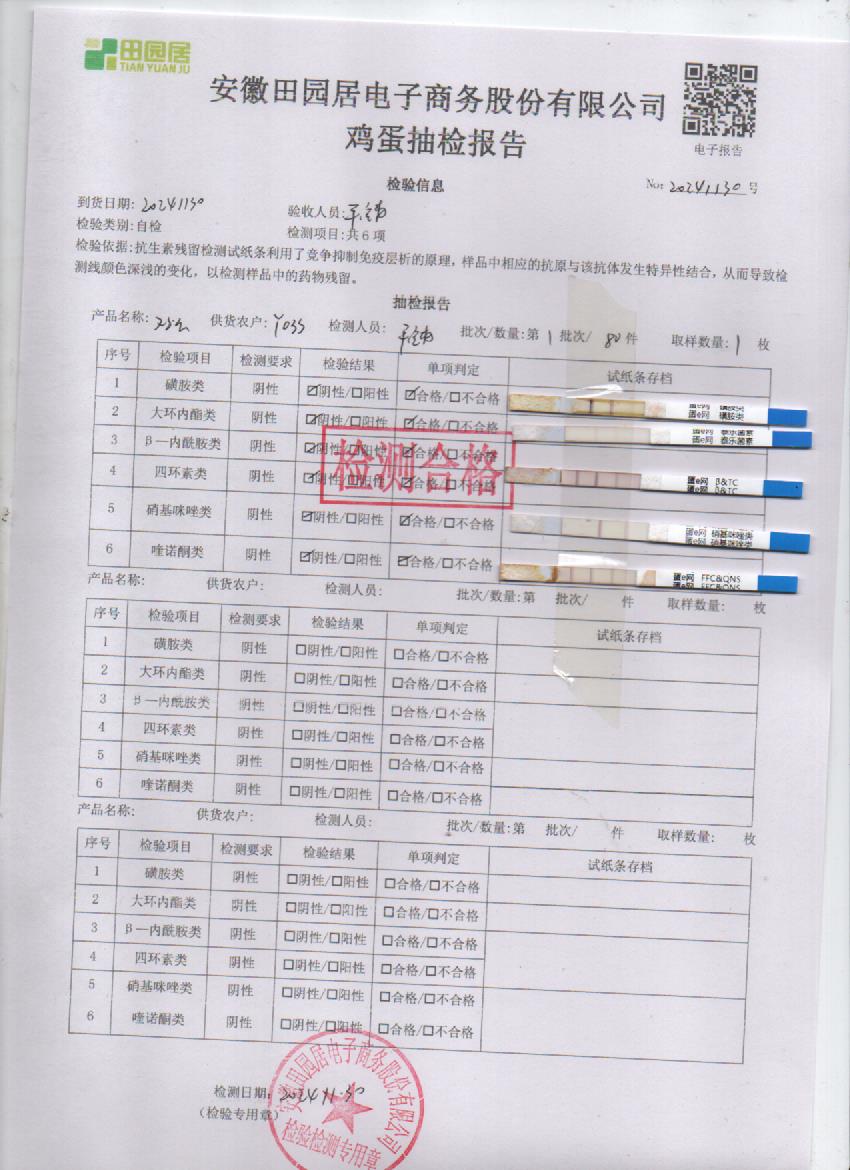 田园居
TIAN YUAN JU
安徽田园居电子商务股份有限公司
鸡蛋抽检报告
电子报告
检验信息
No: 20241130 号
到货日期: 20241130
验收人员:
检验类别:自检
检测项目:共6项
检验依据:抗生素残留检测试纸条利用了竞争抑制免疫层析的原理，样品中相应的抗原与该抗体发生特异性结合，从而导致检
测线颜色深浅的变化，以检测样品中的药物残留。
抽检报告
产品名称: 供货农户: Y033 检测人员: 批次/数量:第 1 批次/ 80 件 取样数量: 1 枚
序号 检验项目 检测要求 检验结果 单项判定 试纸条存档
1 磺胺类 阴性 ☑阴性/□阳性 ☑合格/□不合格
2 大环内酯类 阴性 ☑阴性/□阳性 ☑合格/□不合格
3 β—内酰胺类 阴性 ☑阴性/□阳性 ☑合格/□不合格
4 四环素类 阴性 ☑阴性/□阳性 ☑合格/□不合格
5 硝基咪唑类 阴性 ☑阴性/□阳性 ☑合格/□不合格
6 喹诺酮类 阴性 ☑阴性/□阳性 ☑合格/□不合格
检测合格
蛋e网 磺胺类
蛋e网 磺胺类
蛋e网 泰乐菌素
蛋e网 泰乐菌素
蛋e网 β&TC
蛋e网 β&TC
蛋e网 硝基咪唑类
蛋e网 硝基咪唑类
蛋e网 FFC&QNS
蛋e网 FFC&QNS
产品名称: 供货农户: 检测人员: 批次/数量:第 批次/ 件 取样数量: 枚
序号 检验项目 检测要求 检验结果 单项判定 试纸条存档
1 磺胺类 阴性 □阴性/□阳性 □合格/□不合格
2 大环内酯类 阴性 □阴性/□阳性 □合格/□不合格
3 β—内酰胺类 阴性 □阴性/□阳性 □合格/□不合格
4 四环素类 阴性 □阴性/□阳性 □合格/□不合格
5 硝基咪唑类 阴性 □阴性/□阳性 □合格/□不合格
6 喹诺酮类 阴性 □阴性/□阳性 □合格/□不合格
产品名称: 供货农户: 检测人员: 批次/数量:第 批次/ 件 取样数量: 枚
序号 检验项目 检测要求 检验结果 单项判定 试纸条存档
1 磺胺类 阴性 □阴性/□阳性 □合格/□不合格
2 大环内酯类 阴性 □阴性/□阳性 □合格/□不合格
3 β—内酰胺类 阴性 □阴性/□阳性 □合格/□不合格
4 四环素类 阴性 □阴性/□阳性 □合格/□不合格
5 硝基咪唑类 阴性 □阴性/□阳性 □合格/□不合格
6 喹诺酮类 阴性 □阴性/□阳性 □合格/□不合格
检测日期: 2024.11.30
(检验专用章)
安徽田园居电子商务股份有限公司
检验检测专用章